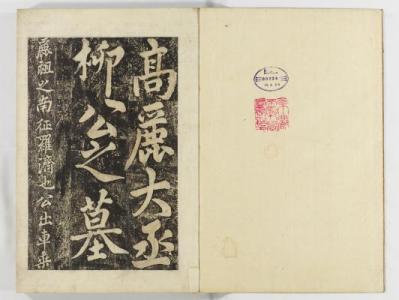 高麗大丞
柳公之墓
麗祖之南征羅濟也公出車乘